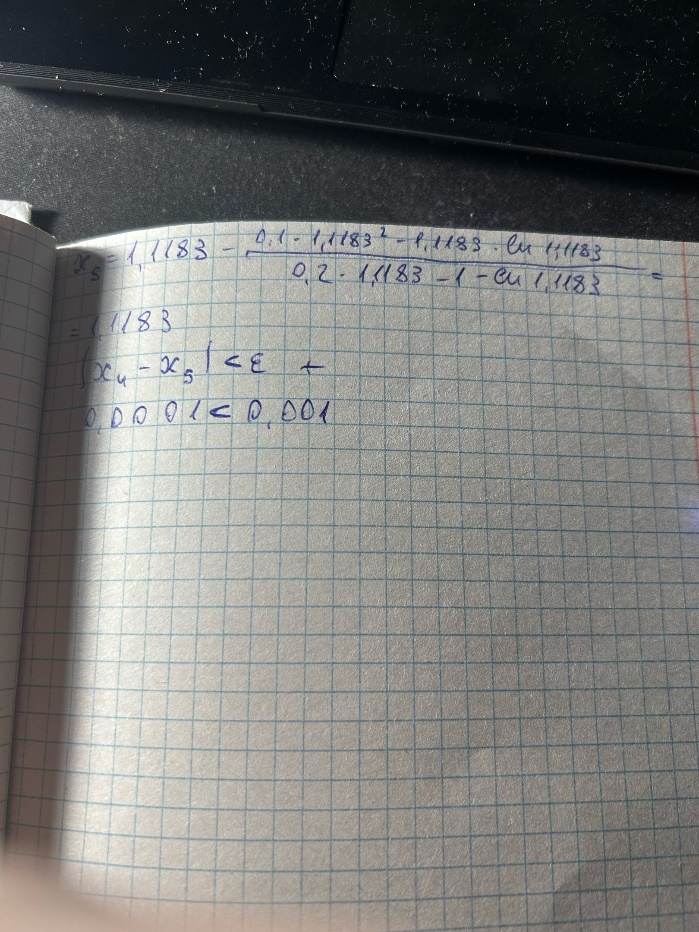 x₅ = 1,1183 - (0,1 · 1,1183² - 1,1183 · ln 1,1183) / (0,2 · 1,1183 - 1 - ln 1,1183) =
= 1,1183
|x₄ - x₅| < ε +
0,0001 < 0,001